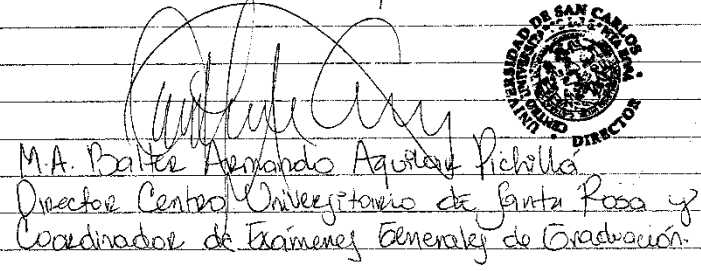 UNIVERSIDAD DE SAN CARLOS
CENTRO UNIVERSITARIO SANTA ROSA
DIRECTOR
M.A. Balter Armando Aguilar Pichillá
Director Centro Universitario de Santa Rosa y
Coordinador de Exámenes Generales de Graduación.